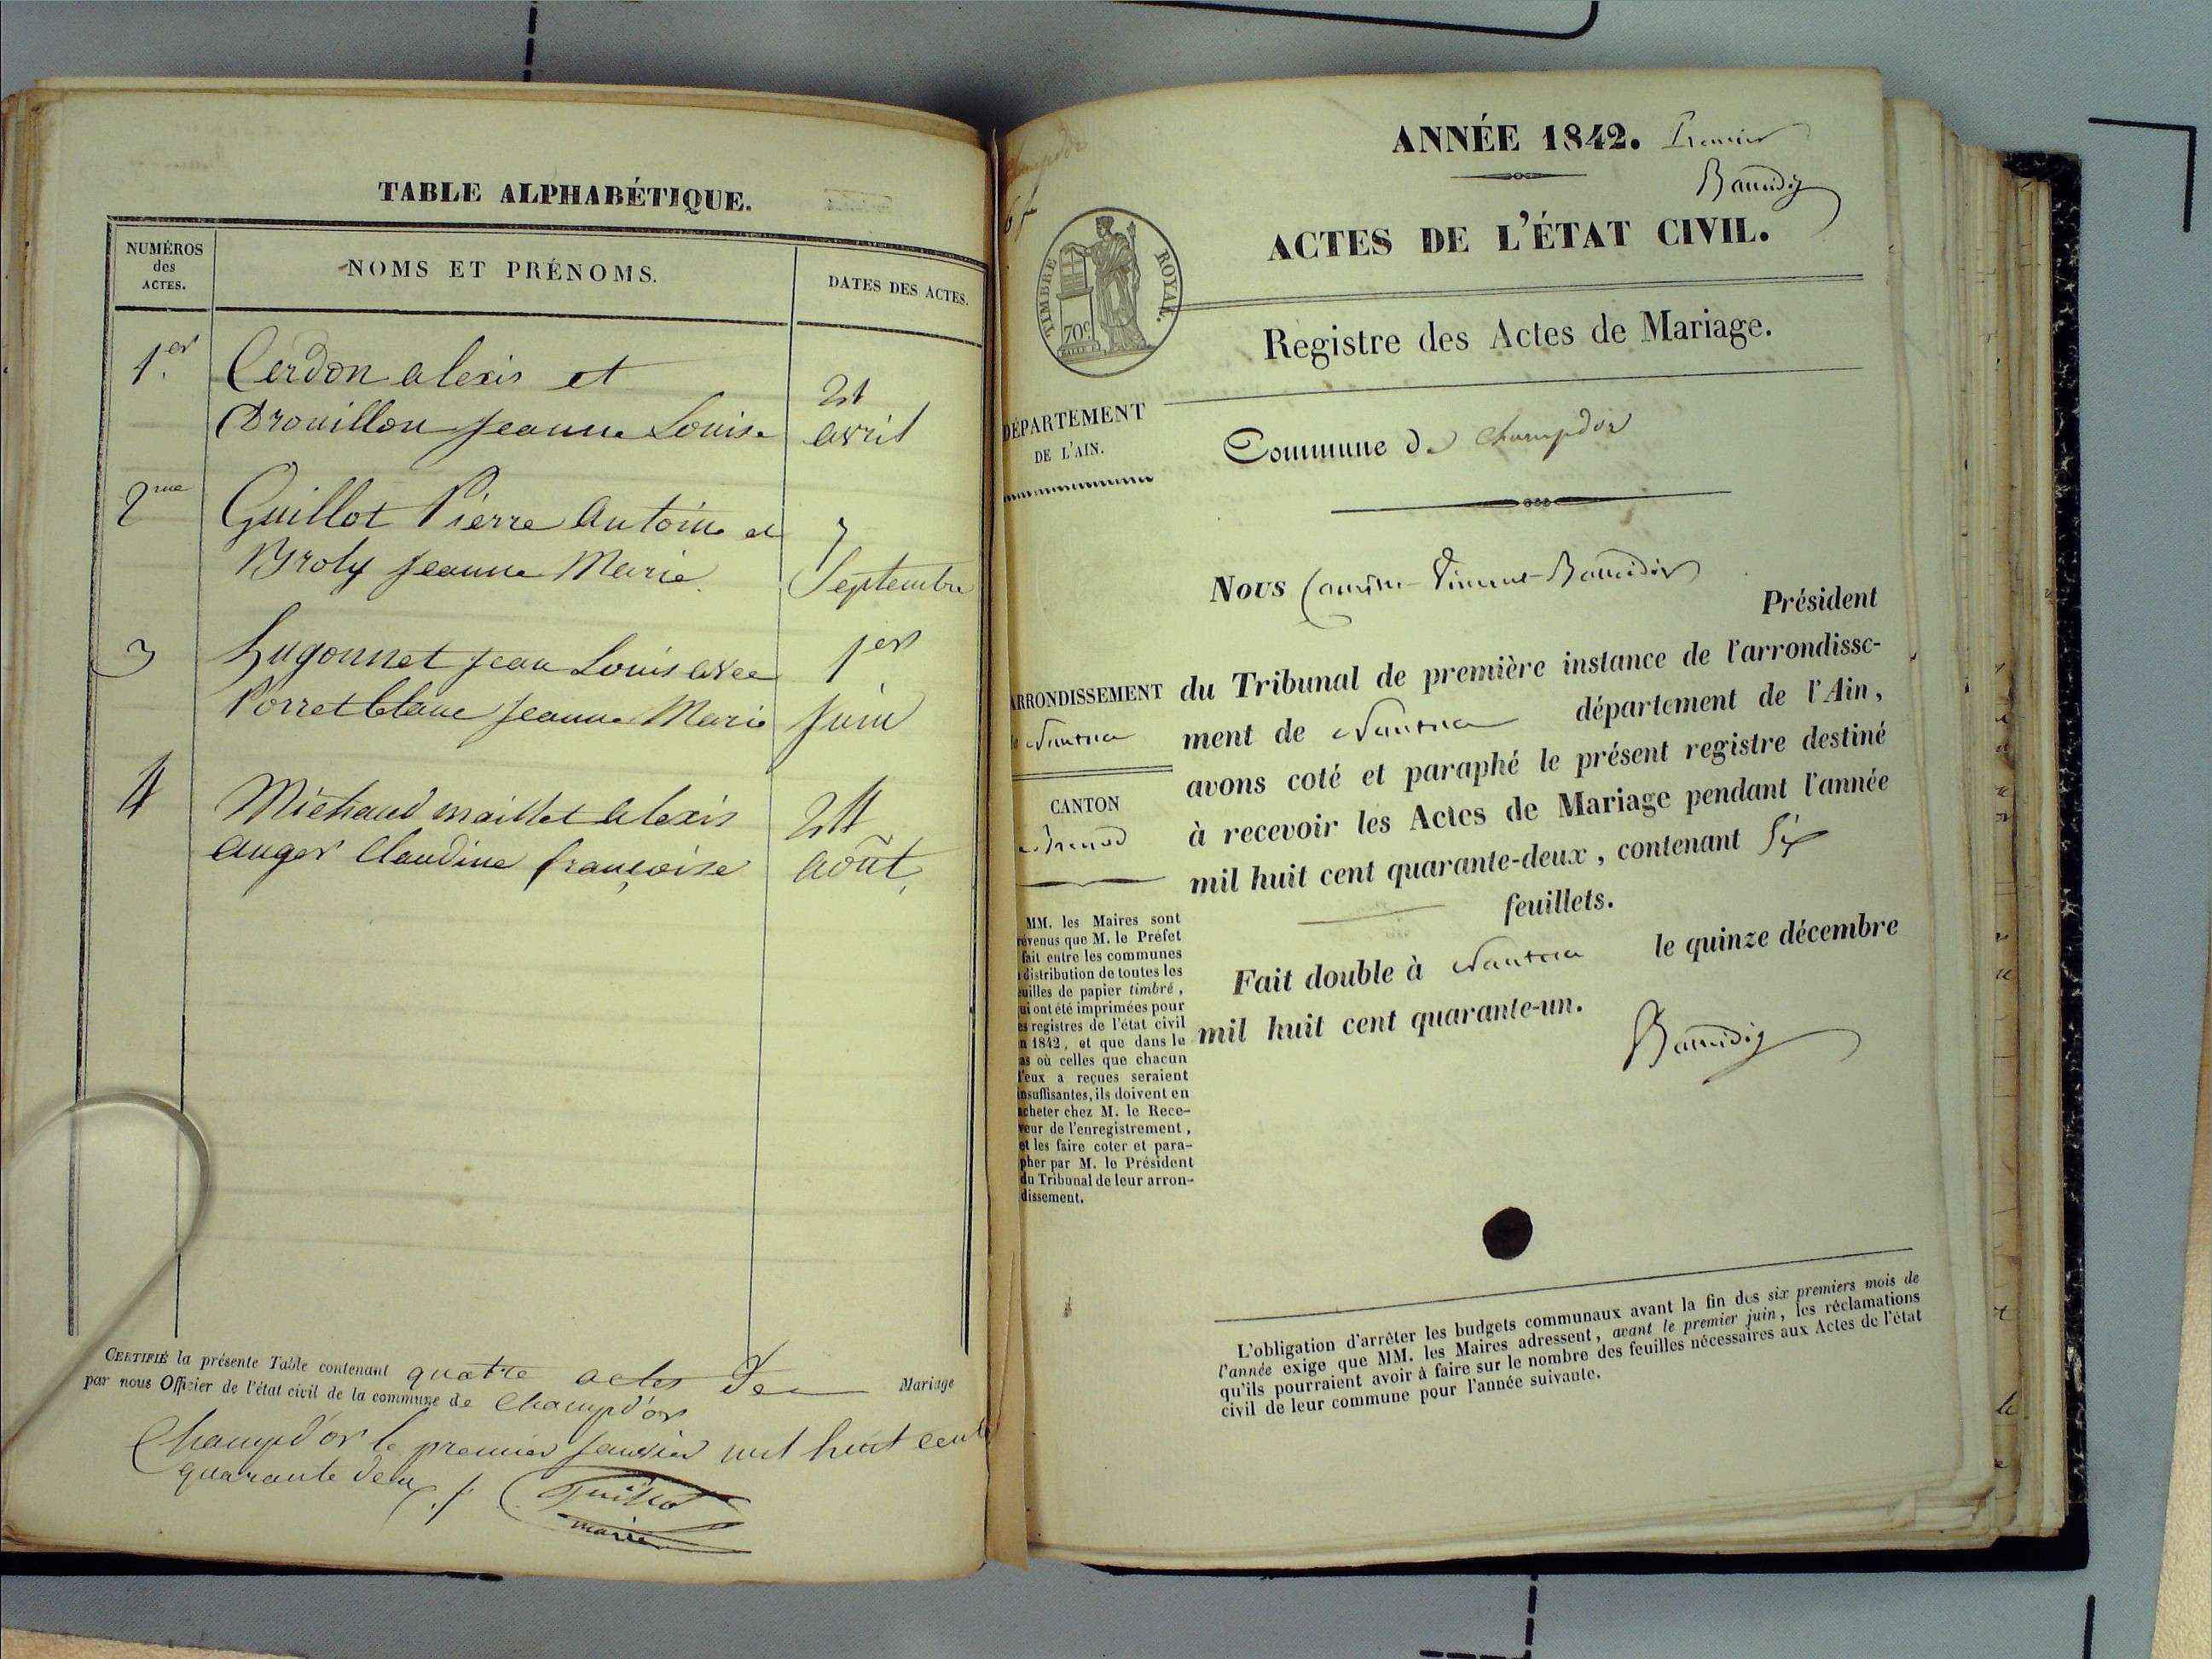 TABLE ALPHABÉTIQUE.
NUMÉROS
des
ACTES.
NOMS ET PRÉNOMS.
DATES DES ACTES.
1.er Cerdon alexis et
Drouillon Jeanne Louise
21
avril
2me Guillot Pierre Antoine et
Broly Jeanne Marie
7
Septembre
3 Hugonnet Jean Louis avec
Porret blanc Jeanne Marie
1er
Juin
4 Michaud maillet alexis
auger Claudine françoise
24
août
CERTIFIÉ la présente Table contenant quatre actes de Mariage
par nous Officier de l'état civil de la commune de Champd'or
Champd'or le premier Janvier mil huit cent
quarante deux ./.
maire
ANNÉE 1842. Premier
ACTES DE L'ÉTAT CIVIL.
TIMBRE ROYAL.
70c
Registre des Actes de Mariage.
DÉPARTEMENT
DE L'AIN.
Commune de Champdor
Nous
Président
du Tribunal de première instance de l'arrondisse-
ment de Nantua département de l'Ain,
avons coté et paraphé le présent registre destiné
à recevoir les Actes de Mariage pendant l'année
mil huit cent quarante-deux, contenant Six
feuillets.
Fait double à Nantua le quinze décembre
mil huit cent quarante-un.
ARRONDISSEMENT
Nantua
CANTON
MM. les Maires sont
révenus que M. le Préfet
fait entre les communes
distribution de toutes les
euilles de papier timbré,
ui ont été imprimées pour
es registres de l'état civil
n 1842, et que dans le
as où celles que chacun
d'eux a reçues seraient
insuffisantes, ils doivent en
acheter chez M. le Rece-
veur de l'enregistrement,
et les faire coter et para-
pher par M. le Président
du Tribunal de leur arron-
dissement.
L'obligation d'arrêter les budgets communaux avant la fin des six premiers mois de
l'année exige que MM. les Maires adressent, avant le premier juin, les réclamations
qu'ils pourraient avoir à faire sur le nombre des feuilles nécessaires aux Actes de l'état
civil de leur commune pour l'année suivante.